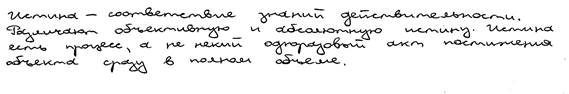 Истина – соответствие знаний действительности.
Различают объективную и абсолютную истину. Истина
есть процесс, а не некий одноразовый акт постижения
объекта сразу в полном объеме.